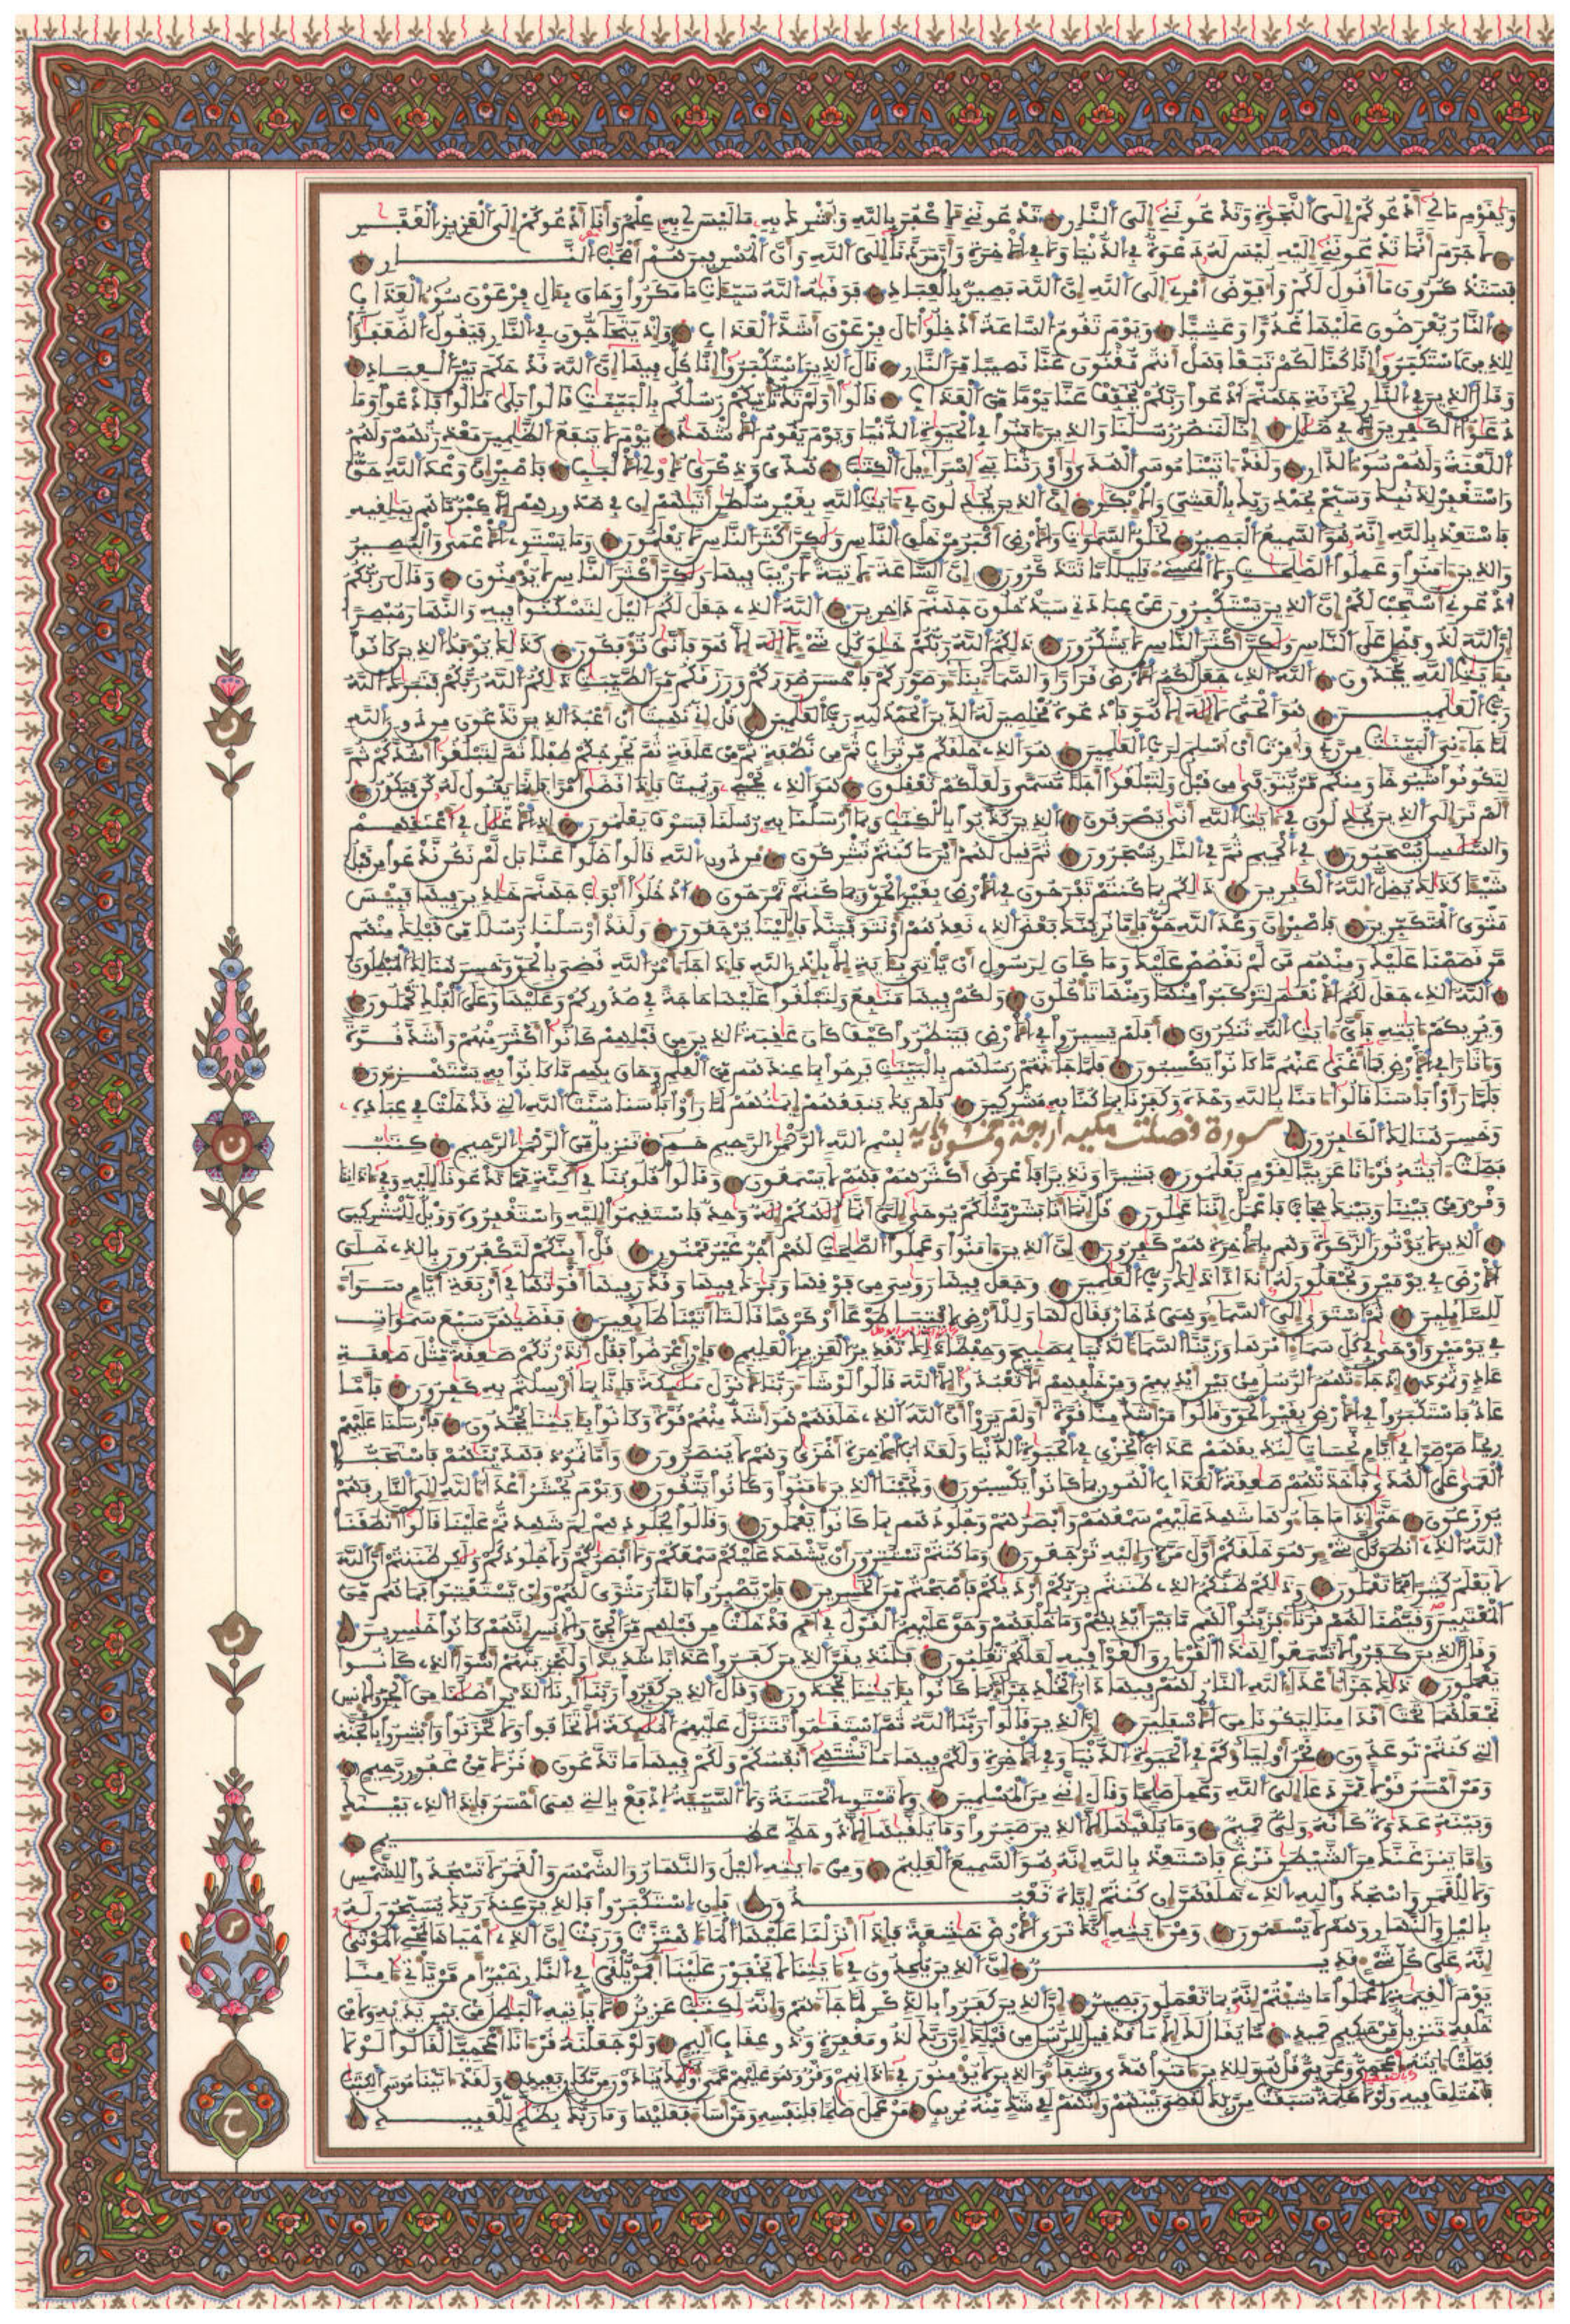 ويقوم ما لي أدعوكم إلى النجوة وتدعونني إلى النار تدعونني لأكفر بالله وأشرك به ما ليس لي به علم وأنا أدعوكم إلى العزيز الغفر
لا جرم أنما تدعونني إليه ليس له دعوة في الدنيا ولا في الأخرة وأن مردنا إلى الله وأن المسرفين هم أصحب النار
فستذكرون ما أقول لكم وأفوض أمري إلى الله إن الله بصير بالعباد فوقيه الله سيئات ما مكروا وحاق بئال فرعون سوء العذاب
النار يعرضون عليها غدوا وعشيا ويوم تقوم الساعة أدخلوا ءال فرعون أشد العذاب وإذ يتحاجون في النار فيقول الضعفؤا
للذين استكبروا إنا كنا لكم تبعا فهل أنتم مغنون عنا نصيبا من النار قال الذين استكبروا إنا كل فيها إن الله قد حكم بين العباد
وقال الذين في النار لخزنة جهنم ادعوا ربكم يخفف عنا يوما من العذاب قالوا أولم تك تأتيكم رسلكم بالبينت قالوا بلى قالوا فادعوا وما
دعؤا الكفرين إلا في ضلل إنا لننصر رسلنا والذين ءامنوا في الحيوة الدنيا ويوم يقوم الأشهد يوم لا ينفع الظلمين معذرتهم ولهم
اللعنة ولهم سوء الدار ولقد ءاتينا موسى الهدى وأورثنا بني إسراءيل الكتب هدى وذكرى لأولي الألبب فاصبر إن وعد الله حق
واستغفر لذنبك وسبح بحمد ربك بالعشي والإبكر إن الذين يجدلون في ءايت الله بغير سلطن أتيهم إن في صدورهم إلا كبر ما هم ببلغيه
فاستعذ بالله إنه هو السميع البصير لخلق السموت والأرض أكبر من خلق الناس ولكن أكثر الناس لا يعلمون وما يستوي الأعمى والبصير
والذين ءامنوا وعملوا الصلحت ولا المسيء قليلا ما تتذكرون إن الساعة لأتية لا ريب فيها ولكن أكثر الناس لا يؤمنون وقال ربكم
ادعوني أستجب لكم إن الذين يستكبرون عن عبادتي سيدخلون جهنم داخرين الله الذي جعل لكم اليل لتسكنوا فيه والنهار مبصرا
إن الله لذو فضل على الناس ولكن أكثر الناس لا يشكرون ذلكم الله ربكم خلق كل شيء لا إله إلا هو فأنى تؤفكون كذلك يؤفك الذين كانوا
بئايت الله يجحدون الله الذي جعل لكم الأرض قرارا والسماء بناء وصوركم فأحسن صوركم ورزقكم من الطيبت ذلكم الله ربكم فتبرك الله
رب العلمين هو الحي لا إله إلا هو فادعوه مخلصين له الدين الحمد لله رب العلمين قل إني نهيت أن أعبد الذين تدعون من دون الله
لما جاءني البينت من ربي وأمرت أن أسلم لرب العلمين هو الذي خلقكم من تراب ثم من نطفة ثم من علقة ثم يخرجكم طفلا ثم لتبلغوا أشدكم ثم
لتكونوا شيوخا ومنكم من يتوفى من قبل ولتبلغوا أجلا مسمى ولعلكم تعقلون هو الذي يحي ويميت فإذا قضى أمرا فإنما يقول له كن فيكون
ألم تر إلى الذين يجدلون في ءايت الله أنى يصرفون الذين كذبوا بالكتب وبما أرسلنا به رسلنا فسوف يعلمون إذ الأغلل في أعنقهم
والسلسل يسحبون في الحميم ثم في النار يسجرون ثم قيل لهم أين ما كنتم تشركون من دون الله قالوا ضلوا عنا بل لم نكن ندعوا من قبل
شيئا كذلك يضل الله الكفرين ذلكم بما كنتم تفرحون في الأرض بغير الحق وبما كنتم تمرحون ادخلوا أبوب جهنم خلدين فيها فبيس
مثوى المتكبرين فاصبر إن وعد الله حق فإما نرينك بعض الذي نعدهم أو نتوفينك فإلينا يرجعون ولقد أرسلنا رسلا من قبلك منهم
من قصصنا عليك ومنهم من لم نقصص عليك وما كان لرسول أن يأتي بئاية إلا بإذن الله فإذا جاء امر الله قضي بالحق وخسر هنالك المبطلون
الله الذي جعل لكم الأنعم لتركبوا منها ومنها تأكلون ولكم فيها منفع ولتبلغوا عليها حاجة في صدوركم وعليها وعلى الفلك تحملون
ويريكم ءايته فأي ءايت الله تنكرون أفلم يسيروا في الأرض فينظروا كيف كان عقبة الذين من قبلهم كانوا أكثر منهم وأشد قوة
وءاثارا في الأرض فما أغنى عنهم ما كانوا يكسبون فلما جاءتهم رسلهم بالبينت فرحوا بما عندهم من العلم وحاق بهم ما كانوا به يستهزءون
فلما رأوا بأسنا قالوا ءامنا بالله وحده وكفرنا بما كنا به مشركين فلم يك ينفعهم إيمنهم لما رأوا بأسنا سنت الله التي قد خلت في عباده
وخسر هنالك الكفرون سورة فصلت مكية أربعة وخمسون ءاية بسم الله الرحمن الرحيم حم تنزيل من الرحمن الرحيم كتب
فصلت ءايته قرءانا عربيا لقوم يعلمون بشيرا ونذيرا فأعرض أكثرهم فهم لا يسمعون وقالوا قلوبنا في أكنة مما تدعونا إليه وفي ءاذاننا
وقر ومن بيننا وبينك حجاب فاعمل إننا عملون قل إنما أنا بشر مثلكم يوحى إلي أنما إلهكم إله وحد فاستقيموا إليه واستغفروه وويل للمشركين
الذين لا يؤتون الزكوة وهم بالأخرة هم كفرون إن الذين ءامنوا وعملوا الصلحت لهم أجر غير ممنون قل أينكم لتكفرون بالذي خلق
الأرض في يومين وتجعلون له أندادا ذلك رب العلمين وجعل فيها روسي من فوقها وبرك فيها وقدر فيها أقوتها في أربعة أيام سواء
للسائلين ثم استوى إلى السماء وهي دخان فقال لها وللأرض ائتيا طوعا أو كرها قالتا أتينا طائعين فقضيهن سبع سموات
في يومين وأوحى في كل سماء امرها وزينا السماء الدنيا بمصبيح وحفظا ذلك تقدير العزيز العليم فإن أعرضوا فقل أنذرتكم صعقة مثل صعقة
عاد وثمود إذ جاءتهم الرسل من بين أيديهم ومن خلفهم ألا تعبدوا إلا الله قالوا لو شاء ربنا لأنزل ملئكة فإنا بما أرسلتم به كفرون فأما
عاد فاستكبروا في الأرض بغير الحق وقالوا من أشد منا قوة أولم يروا أن الله الذي خلقهم هو أشد منهم قوة وكانوا بئايتنا يجحدون فأرسلنا عليهم
ريحا صرصرا في أيام نحسات لنذيقهم عذاب الخزي في الحيوة الدنيا ولعذاب الأخرة أخزى وهم لا ينصرون وأما ثمود فهدينهم فاستحبوا
العمى على الهدى فأخذتهم صعقة العذاب الهون بما كانوا يكسبون ونجينا الذين ءامنوا وكانوا يتقون ويوم نحشر أعداء الله إلى النار فهم
يوزعون حتى إذا ما جاءوها شهد عليهم سمعهم وأبصرهم وجلودهم بما كانوا يعملون وقالوا لجلودهم لم شهدتم علينا قالوا أنطقنا
الله الذي أنطق كل شيء وهو خلقكم أول مرة وإليه ترجعون وما كنتم تستترون أن يشهد عليكم سمعكم ولا أبصركم ولا جلودكم ولكن ظننتم أن الله
لا يعلم كثيرا مما تعملون وذلكم ظنكم الذي ظننتم بربكم أرديكم فأصبحتم من الخسرين فإن يصبروا فالنار مثوى لهم وإن يستعتبوا فما هم من
المعتبين وقيضنا لهم قرناء فزينوا لهم ما بين أيديهم وما خلفهم وحق عليهم القول في أمم قد خلت من قبلهم من الجن والإنس إنهم كانوا خسرين
وقال الذين كفروا لا تسمعوا لهذا القرءان والغوا فيه لعلكم تغلبون فلنذيقن الذين كفروا عذابا شديدا ولنجزينهم أسوأ الذي كانوا
يعملون ذلك جزاء اعداء الله النار لهم فيها دار الخلد جزاء بما كانوا بئايتنا يجحدون وقال الذين كفروا ربنا أرنا الذين أضلنا من الجن والإنس
نجعلهما تحت أقدامنا ليكونا من الأسفلين إن الذين قالوا ربنا الله ثم استقموا تتنزل عليهم الملئكة ألا تخافوا ولا تحزنوا وأبشروا بالجنة
التي كنتم توعدون نحن أولياؤكم في الحيوة الدنيا وفي الأخرة ولكم فيها ما تشتهي أنفسكم ولكم فيها ما تدعون نزلا من غفور رحيم
ومن أحسن قولا ممن دعا إلى الله وعمل صلحا وقال إنني من المسلمين ولا تستوي الحسنة ولا السيئة ادفع بالتي هي أحسن فإذا الذي بينك
وبينه عدوة كأنه ولي حميم وما يلقيها إلا الذين صبروا وما يلقيها إلا ذو حظ عظيم
وإما ينزغنك من الشيطن نزغ فاستعذ بالله إنه هو السميع العليم ومن ءايته اليل والنهار والشمس والقمر لا تسجدوا للشمس
ولا للقمر واسجدوا لله الذي خلقهن إن كنتم إياه تعبدون فإن استكبروا فالذين عند ربك يسبحون له
باليل والنهار وهم لا يسئمون ومن ءايته أنك ترى الأرض خشعة فإذا أنزلنا عليها الماء اهتزت وربت إن الذي أحياها لمحي الموتى
إنه على كل شيء قدير إن الذين يلحدون في ءايتنا لا يخفون علينا أفمن يلقى في النار خير أم من يأتي ءامنا
يوم القيمة اعملوا ما شئتم إنه بما تعملون بصير إن الذين كفروا بالذكر لما جاءهم وإنه لكتب عزيز لا يأتيه البطل من بين يديه ولا من
خلفه تنزيل من حكيم حميد ما يقال لك إلا ما قد قيل للرسل من قبلك إن ربك لذو مغفرة وذو عقاب أليم ولو جعلنه قرءانا أعجميا لقالوا لولا
فصلت ءايته ءاعجمي وعربي قل هو للذين ءامنوا هدى وشفاء والذين لا يؤمنون في ءاذانهم وقر وهو عليهم عمى أولئك ينادون من مكان بعيد ولقد ءاتينا موسى الكتب
فاختلف فيه ولولا كلمة سبقت من ربك لقضي بينهم وإنهم لفي شك منه مريب من عمل صلحا فلنفسه ومن أساء فعليها وما ربك بظلم للعبيد
ن
ح